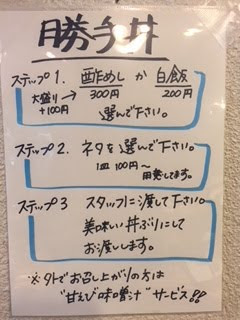 勝手丼
ステップ1. 酢めし か 白飯
大盛り→ 300円 200円
+100円 選んで下さい。
ステップ2. ネタを選んで下さい。
1皿100円〜
用意してます。
ステップ3 スタッフに渡して下さい。
美味い丼ぶりにして
お渡しします。
※外でお召し上がりの方は
"甘えび味噌汁"サービス!!